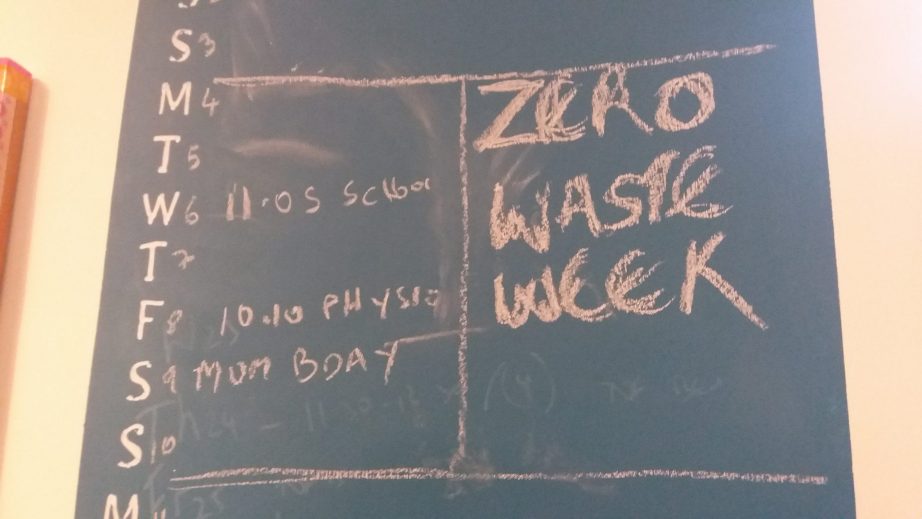 S 3
M 4
T 5
W 6 11.05 School
T 7
F 8 10.10 PHYSIO
S 9 MUM BDAY
S 10
M 11
ZERO
WASTE
WEEK